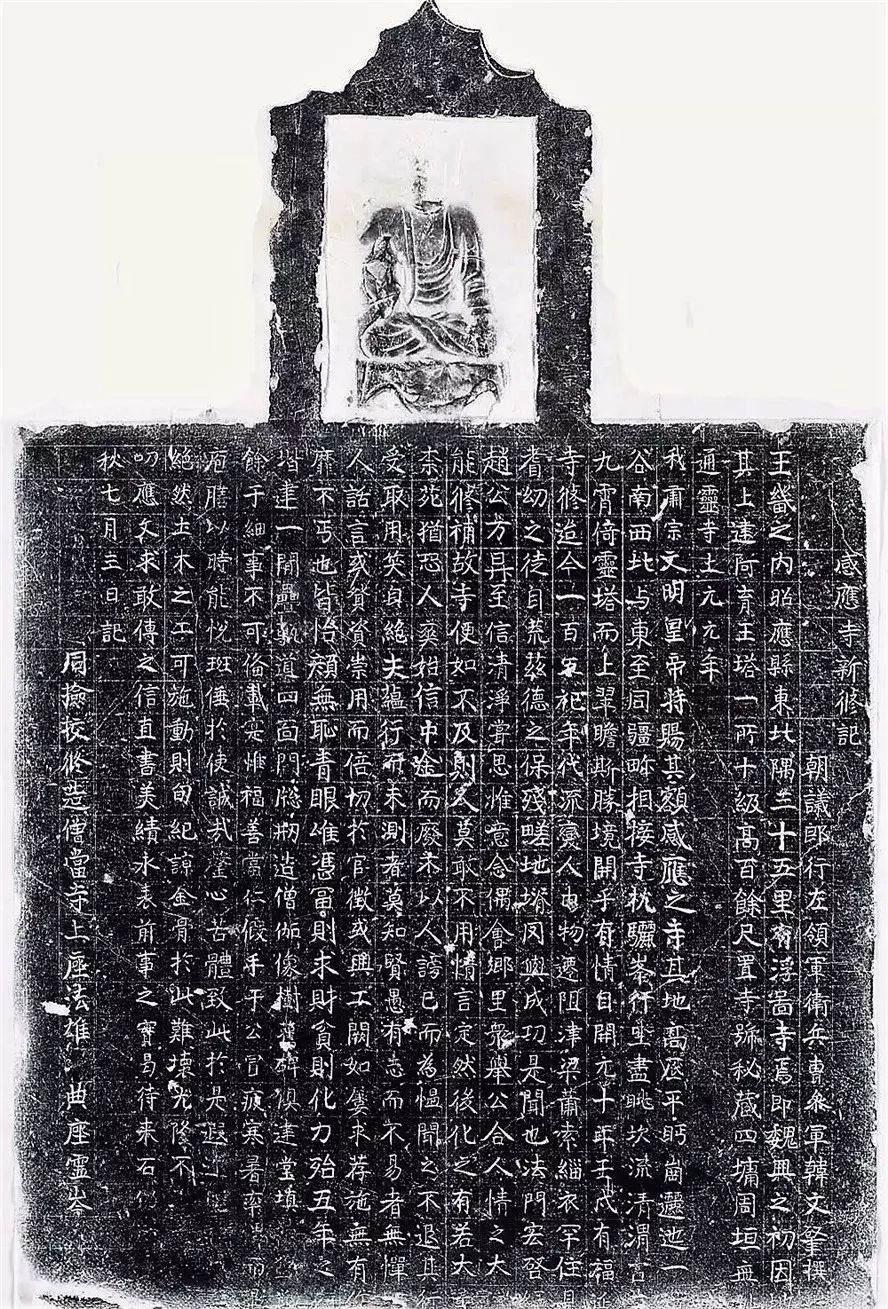 感應寺新修記
朝議郎行左領軍衛兵曹叅軍韓文肇撰
王畿之內昭應縣東北隅三十五里有浮啚寺焉即魏興之初因
其上建阿育王塔一所十級高百餘尺置寺号秘藏四墉周垣
通靈寺上元元年
我肅宗文明皇帝特賜其額感應之寺其地高原平眄崗邐迆一
谷南西北与東至同疆畛相接寺枕驪峯行坐盡眺坎流清渭
九霄倚靈塔而上翠瞻斯勝境開乎有情自開元十年壬戌有福
寺修造今一百五祀年代流變人物遷阻津梁蕭索緇衣罕住
耆幼之徒自荒茲德之保殘疇地塉罔輿成功是聞也法門宏
趙公方具至信清淨嘗思惟意念偶會鄉里衆舉公合人情之大
能修補故寺便如不及則又莫敢不用情言定然後化之有若大
柰苑猶恐人爽始信中途而廢未以人謗已而為慍聞之不退其
受取用奚自絕夫蘊行而未測者莫知賢愚有志而不易者無憚
人詬言或貸資崇用而倍切於官徵或興工闕如屢求荐施無有
靡不丐也皆怡顏無恥青眼唯憑冨則求財貧則化力殆五年之
堦建一間疊軌道四面門牕刱造僧伽像樹碑俱建堂填
餘于細事不可俻載妄惟福善當仁假手于公冒疲寒暑率
庖膳以時能悅班倕於使誠哉瀅心苦體致此於是
絕然土木之工可施動則旬紀諒金骨於此難壞光修不
叨應文求敢傳之信直書美績永表前事之實曷待來石
秋七月三日記
同撿挍修造僧當寺上座法雄 典座靈岑